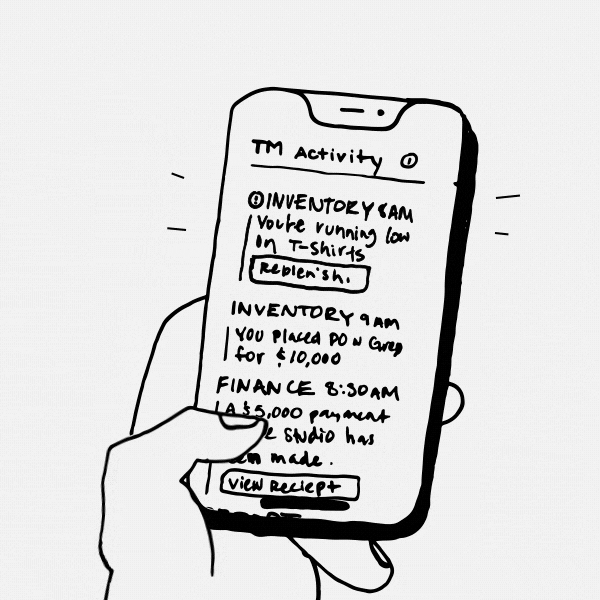 TM Activity
INVENTORY 8AM
You're running low
on T-Shirts
Replenish.
INVENTORY 9AM
YOU placed PO
for $10,000
FINANCE 8:30AM
A $5,000 payment
Studio has
made.
View Reciept